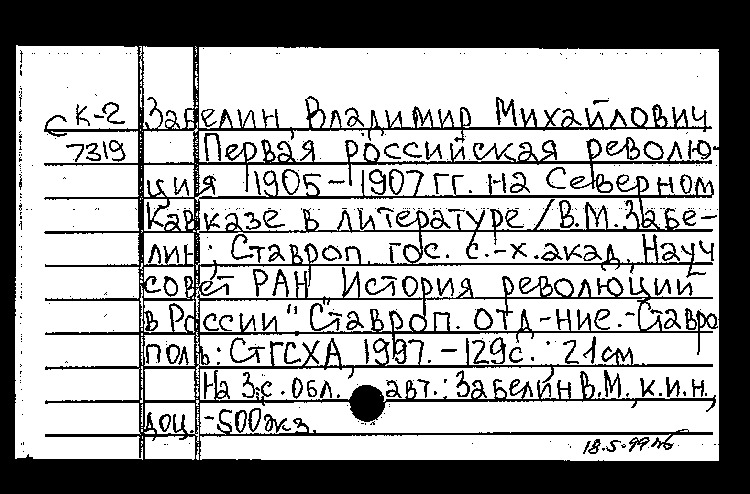 С К-2 Забелин, Владимир Михайлович
7319 Первая российская револю-
ция 1905-1907 гг. на Северном
Кавказе в литературе / В.М. Забе-
лин; Ставроп. гос. с.-х. акад., Науч
совет РАН "История революций
в России". Ставроп. отд-ние. - Ставро
поль: СтГСХА, 1997. - 129с.; 21см
На 3 с. обл. авт.: Забелин В.М., к.и.н.,
доц. - 500экз.
18.5.99